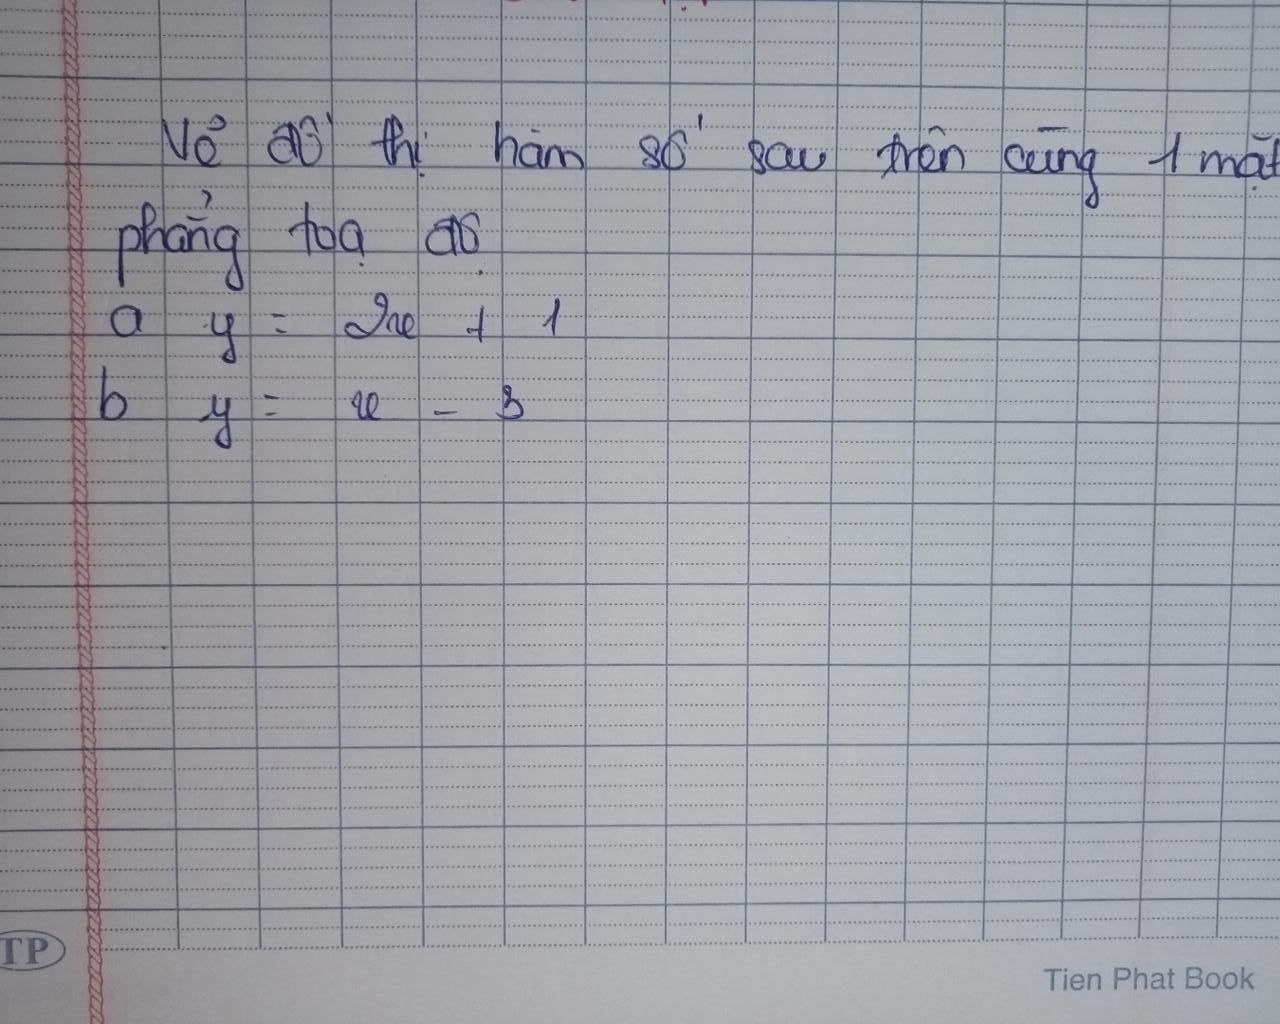 Vẽ đồ thị hàm số sau trên cùng 1 mặt
phẳng toạ độ
a y = 2x + 1
b y = x - 3
TP
Tien Phat Book